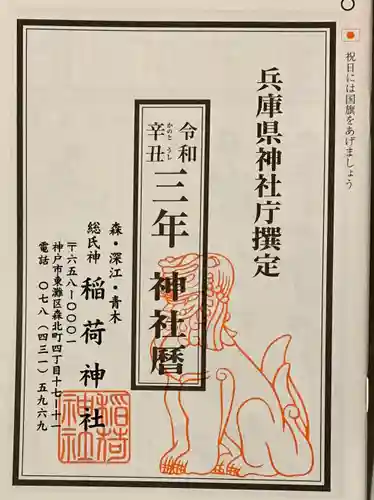 祝日には国旗をあげましょう
兵庫県神社庁撰定
令和
辛丑
かのと うし
三年 神社暦
森・深江・青木
総氏神 稲荷神社
〒六五八-〇〇〇一
神戸市東灘区森北町四丁目十七-十一
電話 〇七八(四三一)五九六九
稲荷
神社